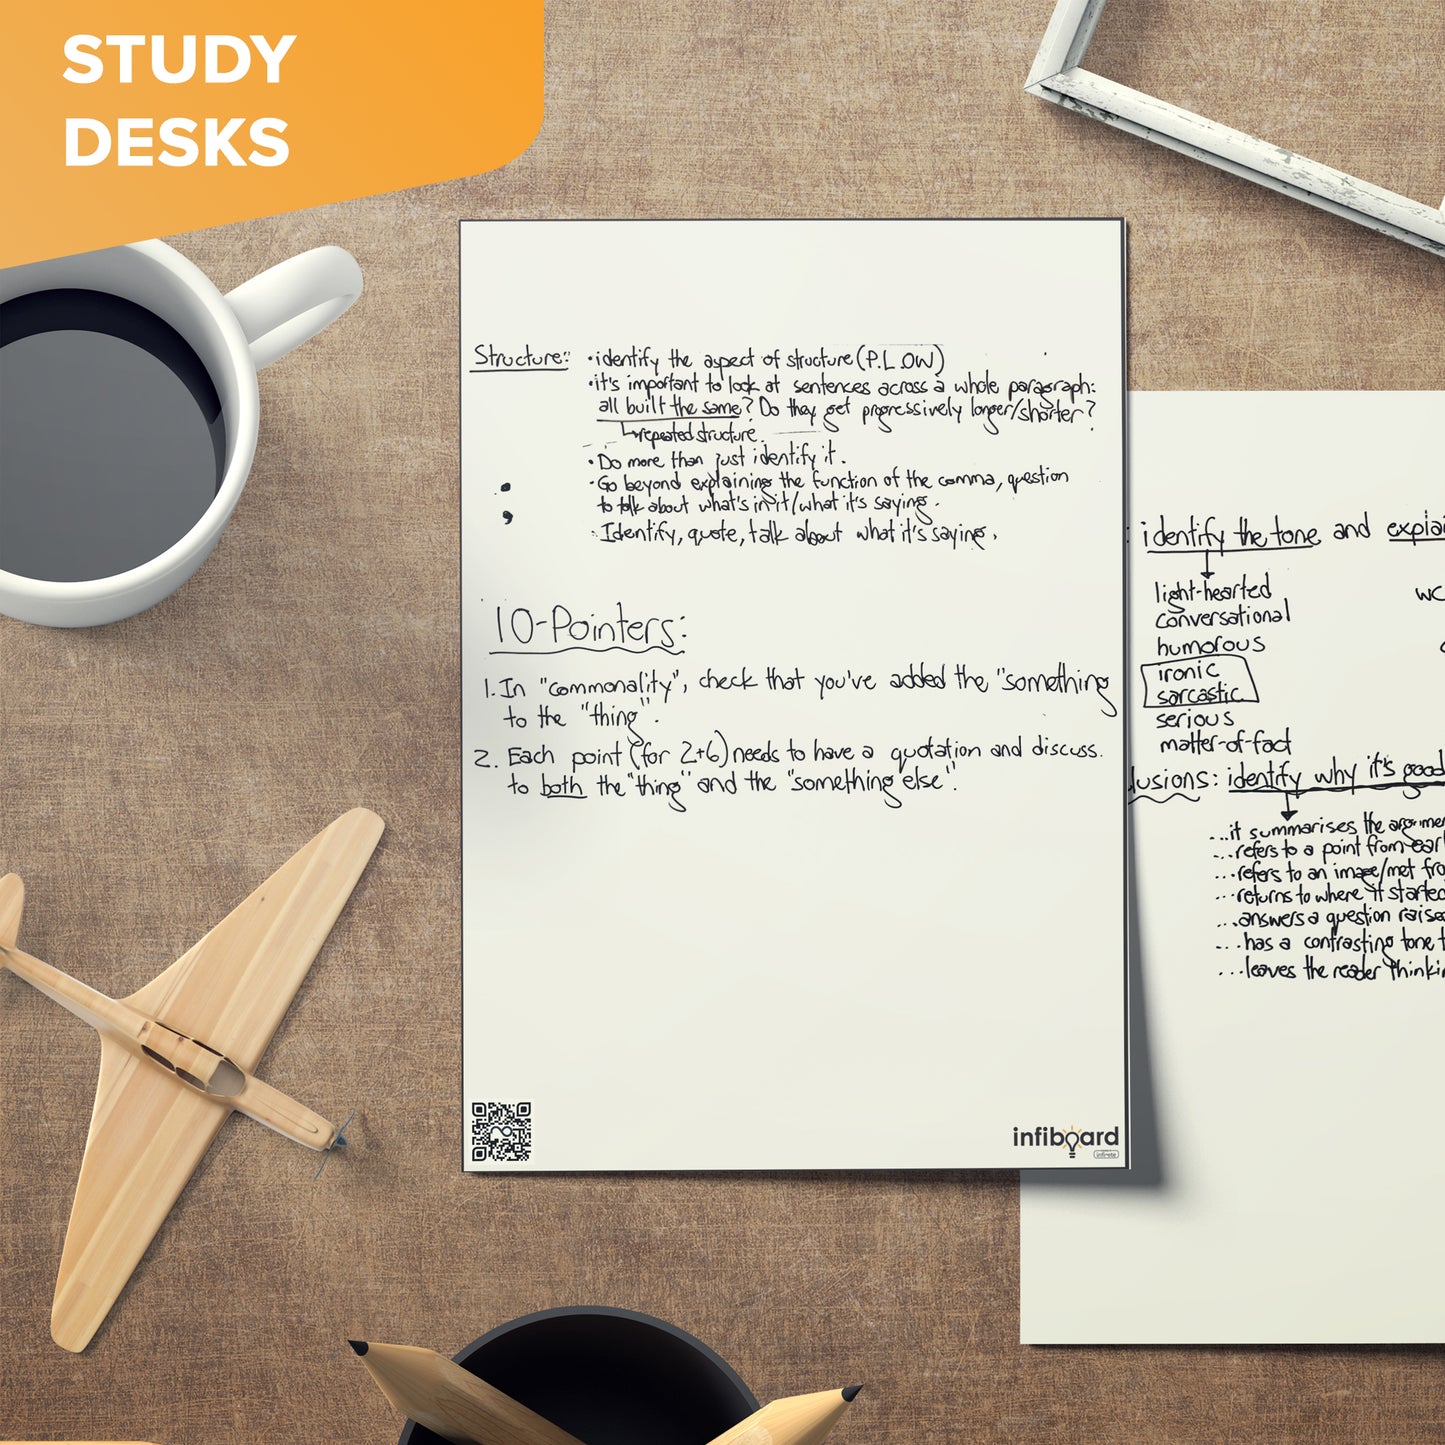 STUDY
DESKS
Structure: • identify the aspect of structure (P.L.OW)
• it's important to look at sentences across a whole paragraph:
all built the same? Do they get progressively longer/shorter?
repeated structure.
• Do more than just identify it.
• Go beyond explaining the function of the comma, question
to talk about what's in it/what it's saying.
• Identify, quote, talk about what it's saying.
;
10-Pointers:
1. In "commonality", check that you've added the "something
to the "thing".
2. Each point (for 2+6) needs to have a quotation and discuss.
to both the "thing" and the "something else".
infiboard
: identify the tone and explai
light-hearted
conversational
humorous
ironic
sarcastic
serious
matter-of-fact
wc
lusions: identify why it's good
...it summarises the argumen
...refers to a point from earl
...refers to an image/met fro
...returns to where it started
...answers a question raise
...has a contrasting tone t
...leaves the reader thinkin